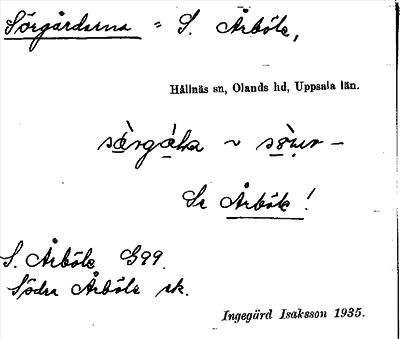 Sörgårdarna = S. Årböle,
Hållnäs sn, Olands hd, Uppsala län.
~
Se Årböle!
S. Årböle G99.
Södra Årböle sk.
Ingegärd Isaksson 1935.